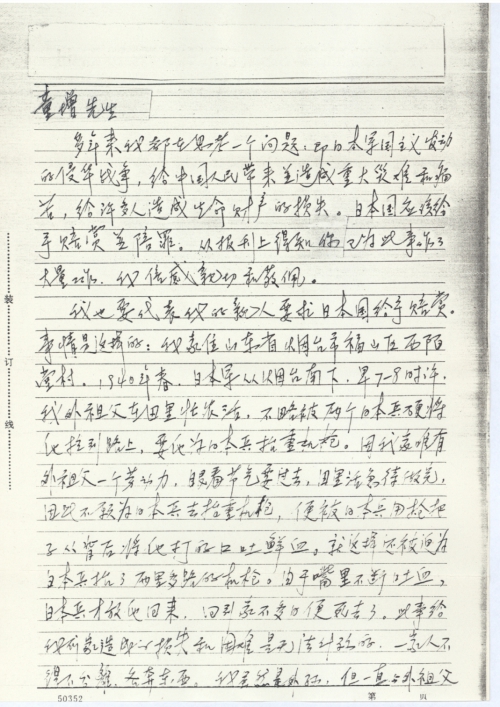 童增先生
多年来我都在思考一个问题：即日本军国主义发动
的侵华战争，给中国人民带来并造成重大灾难和痛
苦，给许多人造成生命财产的损失。日本国应该给
予赔赏并陪罪。从报刊上得知你已为此事作了
大量工作，我倍感亲切和敬佩。
我也要代表我的亲人要求日本国给予赔赏。
事情是这样的：我家住山东省烟台市福山区西陌
堂村。1940年春，日本军从烟台南下，早7-8时许，
我外祖父在田里忙农活，不料被两个日本兵硬将
他拉到路上，要他为日本兵抬重机枪。因我家唯有
外祖父一个劳动力，眼看节气要过去，田里活急待做完，
因此不愿为日本兵去抬重机枪，便被日本兵用枪把
子从背后将他打的口吐鲜血。就这样还被迫为
日本兵抬了两里多路的机枪。由于嘴里不断吐血，
日本兵才放他回来，回到家不多时便死去了。此事给
我们家造成的损失和困难是无法计算的，一家人不
得不分离、各奔东西。我虽然是外孙，但一直与外祖父
50352
第 四
装 订 线